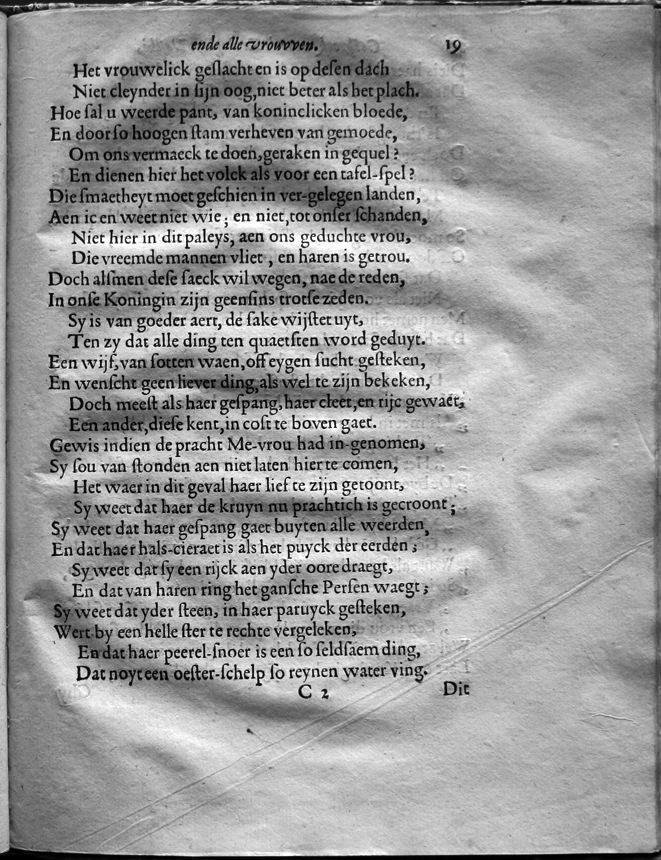 ende alle vrouvven. 19
Het vrouwelick geslacht en is op desen dach
Niet cleynder in sijn oog, niet beter als het plach.
Hoe sal u weerde pant, van koninclicken bloede,
En door so hoogen stam verheven van gemoede,
Om ons vermaeck te doen, geraken in gequel?
En dienen hier het volck als voor een tafel-spel?
Die smaetheyt moet geschien in ver-gelegen landen,
Aen ic en weet niet wie; en niet, tot onser schanden,
Niet hier in dit paleys, aen ons geduchte vrou,
Die vreemde mannen vliet, en haren is getrou.
Doch alsmen dese saeck wil wegen, nae de reden,
In onse Koningin zijn geensins trotse zeden.
Sy is van goeder aert, de sake wijstet uyt,
Ten zy dat alle ding ten quaetsten word geduyt.
Een wijf, van sotten waen, off eygen sucht gesteken,
En wenscht geen liever ding, als wel te zijn bekeken,
Doch meest als haer gespang, haer cleet, en rijc gewaet,
Een ander, diese kent, in cost te boven gaet.
Gewis indien de pracht Me-vrou had in-genomen,
Sy sou van stonden aen niet laten hier te comen,
Het waer in dit geval haer lief te zijn getoont,
Sy weet dat haer de kruyn nu prachtich is gecroont;
Sy weet dat haer gespang gaet buyten alle weerden,
En dat haer hals-cieraet is als het puyck der eerden;
Sy weet dat sy een rijck aen yder oore draegt,
En dat van haren ring het gansche Persen waegt;
Sy weet dat yder steen, in haer paruyck gesteken,
Wert by een helle ster te rechte vergeleken,
En dat haer peerel-snoer is een so seldsaem ding,
Dat noyt een oester-schelp so reynen water ving.
C 2 Dit